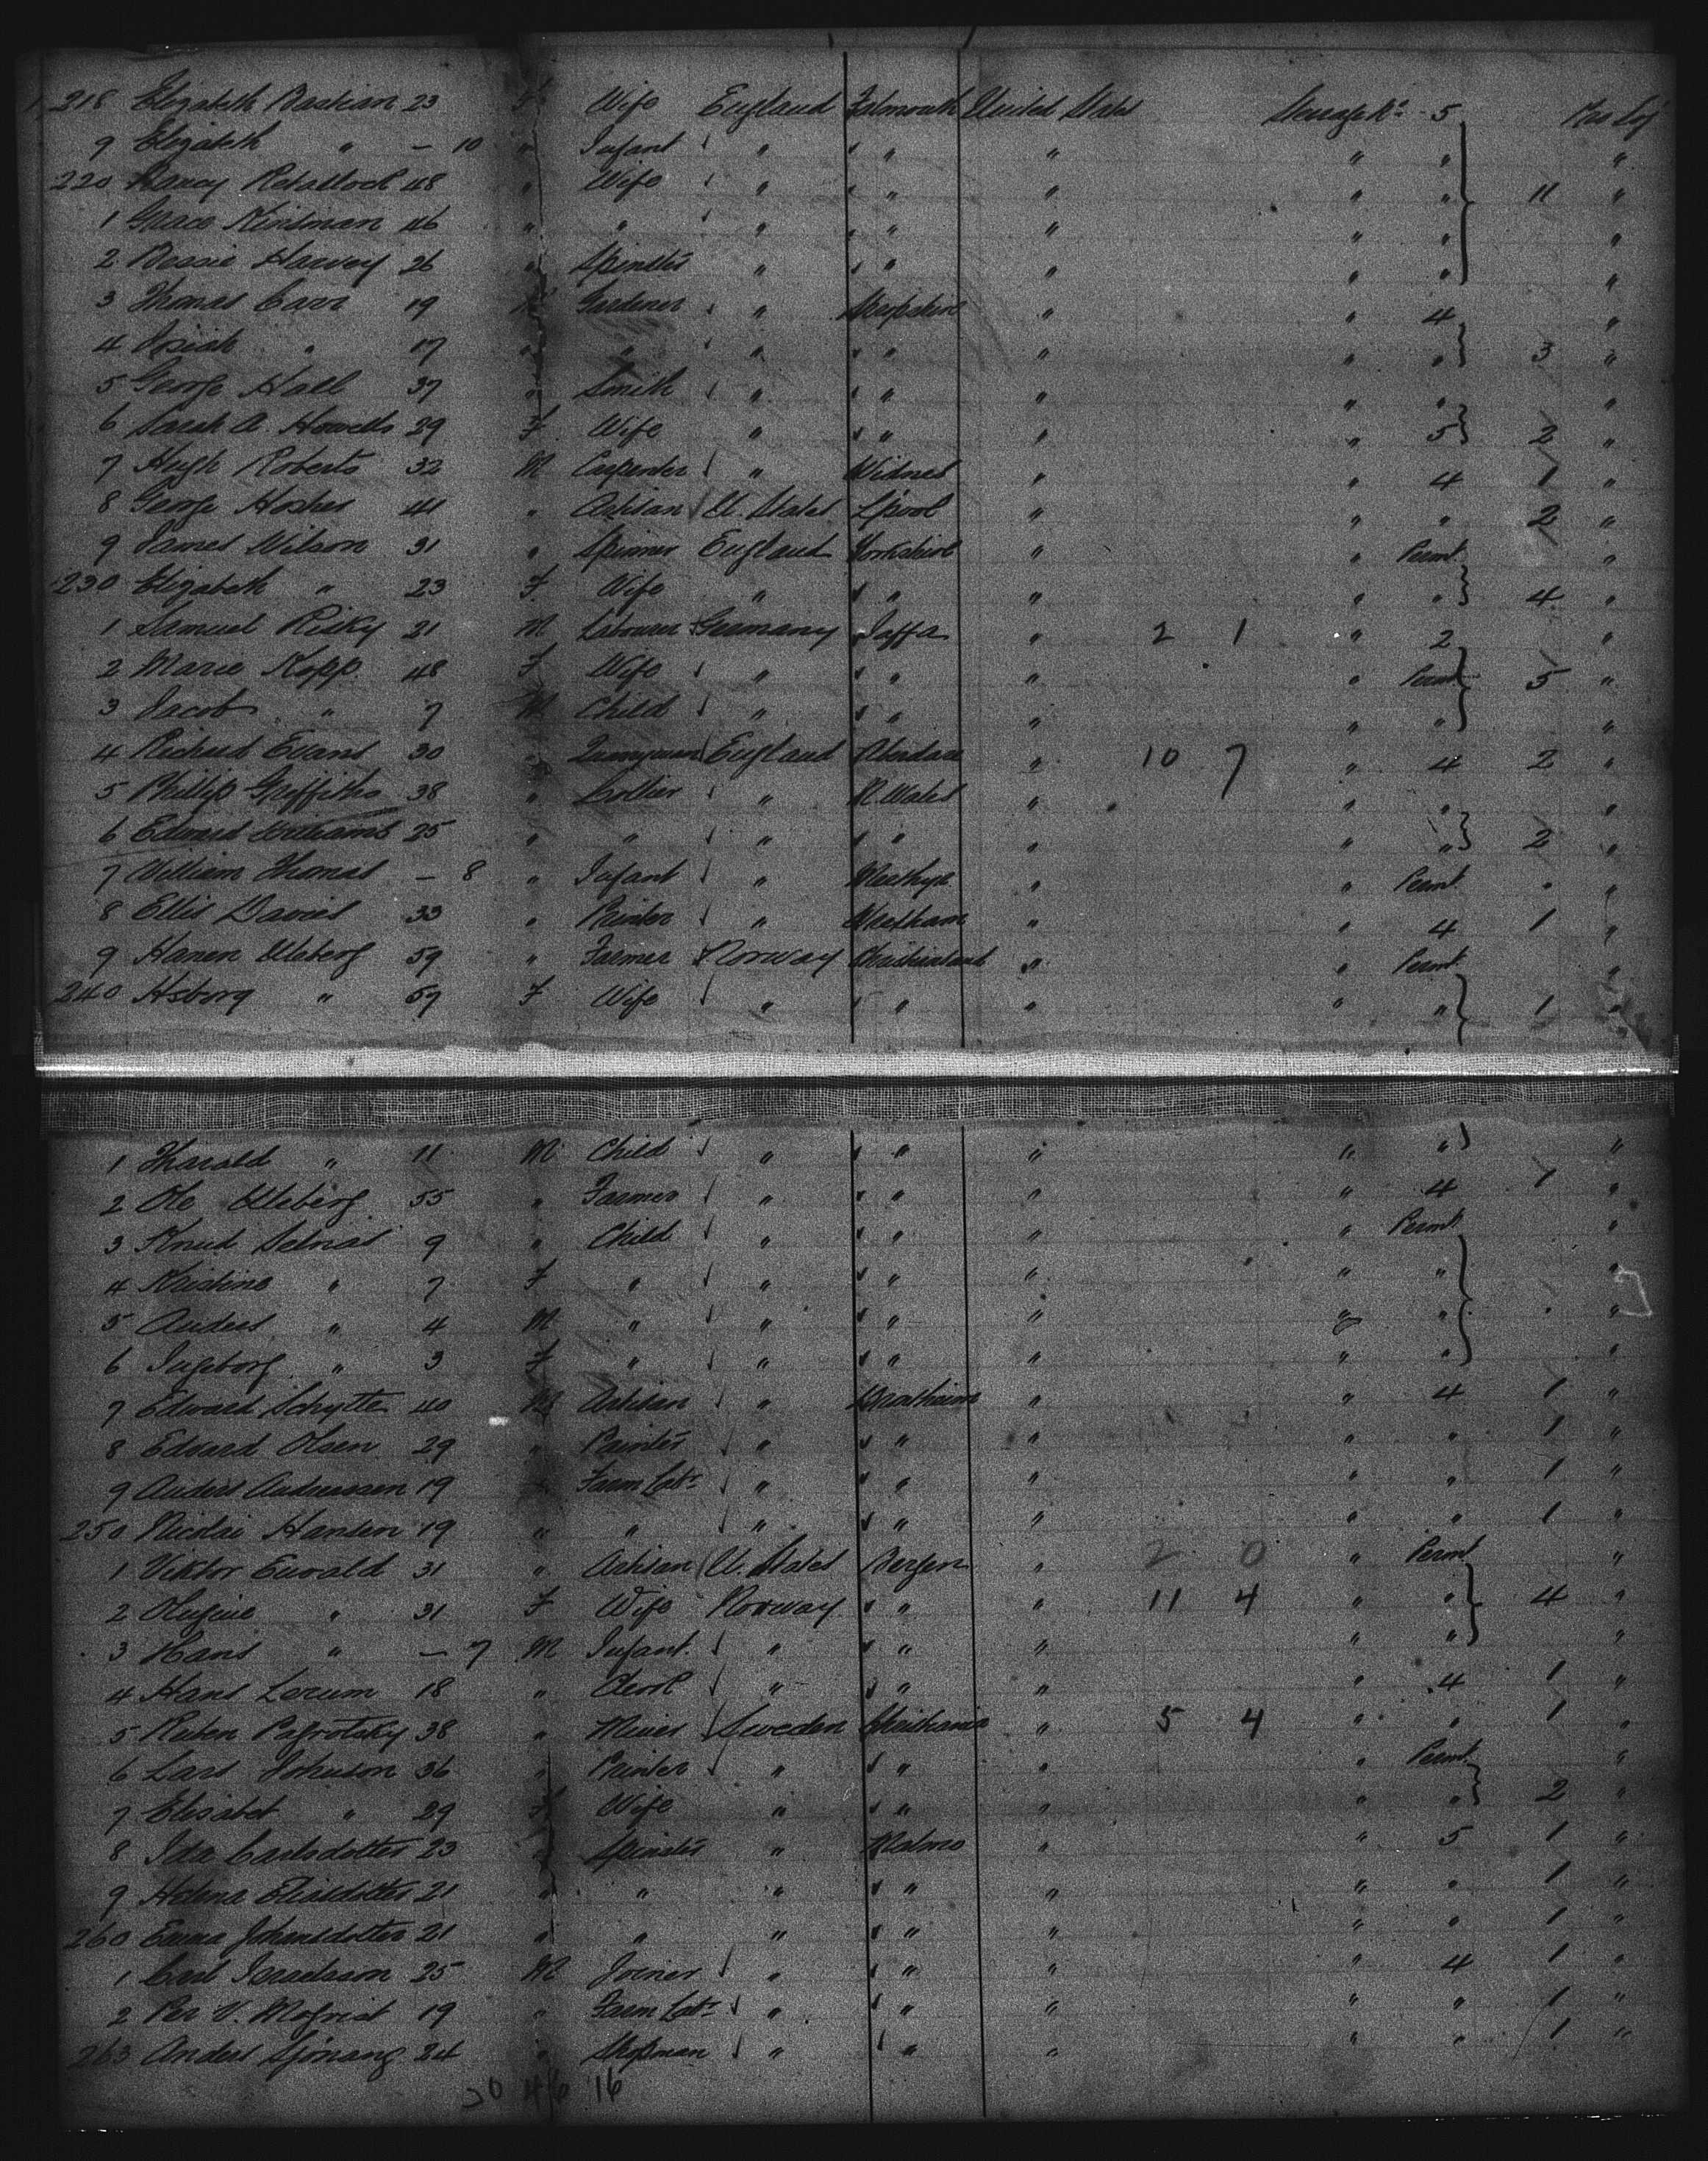 218 Elizabeth Bastian 23 F Wife England Falmouth United States Steerage No 5
9 Elizabeth " — 10 " Infant " " " " "
220 Nancy Retallock 48 " Wife " " " " " 11 "
1 Grace Kindman 46 " " " " " " " "
2 Bessie Harvey 26 " Spinster " " " " " "
3 Thomas Carr 19 M Gardener " " " 4 "
4 " 17 " " " " " " " 3 "
5 George Hall 37 " Smith " " " " " "
6 Sarah A. Howells 29 F Wife " " " " 5 2 "
7 Hugh Roberts 32 M Carpenter " Widnes " " 4 1 "
8 George Hosher 41 " Artisan U. States L'pool " " " 2 "
9 James Wilson 31 " Spinner England Yorkshire " " Permt "
230 Elizabeth " 23 F Wife " " " " " 4 "
1 Samuel Risky 21 M Labourer Germany Jaffa " 2 1 " 2 "
2 Marie Kopp 48 F Wife " " " " Permt 5 "
3 Jacob " 7 M Child " " " " " "
4 Richard Evans 30 " Quarryman England Aberdare " 10 7 " 4 2 "
5 Phillip Griffiths 38 " Collier " N. Wales " " " "
6 Edward Williams 25 " " " " " " " 2 "
7 William Thomas — 8 " Infant " Merthyr " " Permt "
8 Ellis Davies 33 " " Wrexham " " 4 1 "
9 Hanen Uleberg 59 " Farmer Norway Christiansand " " Permt "
240 " 57 F Wife " " " " " 1 "
1 Harald " 11 M Child " " " " " "
2 Ole Uleberg 55 " Farmer " " " " 4 1 "
3 Knud 9 " Child " " " " Permt "
4 Kristine " 7 F " " " " " " "
5 Anders " 4 M " " " " " " "
6 Ingeborg " 3 F " " " " " " "
7 Edward Schytte 40 M Artisan " Drontheim " " 4 1 "
8 Edvard Olsen 29 " Painter " " " " " 1 "
9 Anders Andreassen 19 " Farm Labr " " " " " 1 "
250 Nicolai Hansen 19 " " " " " " " 1 "
1 Viktor Ewald 31 " Artisan U. States Bergen " 2 0 " Permt "
2 " 31 F Wife Norway " " 11 4 " " 4 "
3 Hans " — 7 M Infant " " " " " "
4 Hans Lerum 18 " Clerk " " " " 4 1 "
5 Ruben Pagrotsky 38 " Miner Sweden Christiania " 5 4 " " 1 "
6 Lars Johnson 36 " " " " " Permt "
7 Elisabet " 29 F Wife " " " " " 2 "
8 Ida Carlsdotter 23 " Spinster " Malmo " " 5 1 "
9 Helena Eliasdotter 21 " " " " " " " 1 "
260 Emma Johansdotter 21 " " " " " " " 1 "
1 Carl Israelsson 25 M Joiner " " " " 4 1 "
2 Per V. 19 " Farm Labr " " " " " 1 "
263 Anders 24 " Shopman " " " " " 1 "
20 46 16